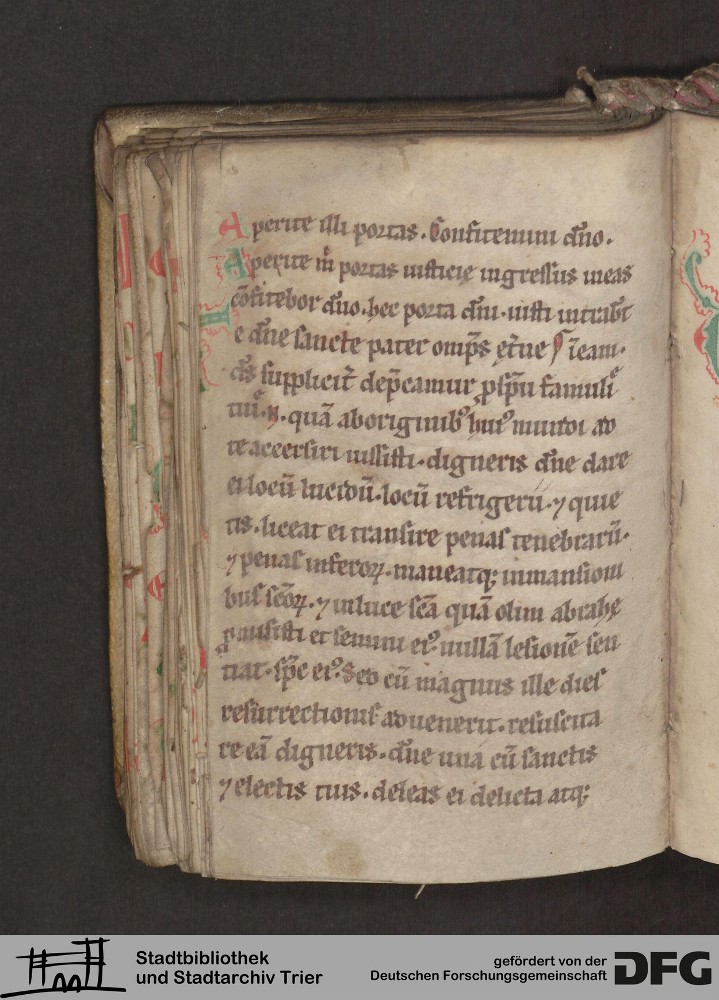 Aperite illi portas. Confitemini dño.
Aperite m̉ portas iusticie ingressus in eas
cõfitebor dño. hec porta dñi. iusti intrabt̃
Te dñe sancte pater omp̃s et̃ne
d̃s supplicit̃ dep̃camur ꝓ sp̃u famuli
tui. N. quã aboriginibꝰ huiꝰ mundi ad
te accersiri iussisti. digneris dñe dare
ei locũ lucidũ. locũ refrigerii. ⁊ quie
tis. liceat ei transire penas tenebrarũ.
⁊ penas inferoꝝ. maneatq; in mansioni
bus scõꝝ. ⁊ in luce scã quã olim abrahe
ꝓmisisti et semini eiꝰ. nullã lesionẽ sen
tiat. sp̃c eiꝰ. Sed cũ magnus ille dies
resurrectionis aduenerit. resuscita
re eã digneris. dñe una cũ sanctis
⁊ electis tuis. deleas ei delicta atq;
Stadtbibliothek
und Stadtarchiv Trier
gefördert von der
Deutschen Forschungsgemeinschaft
DFG